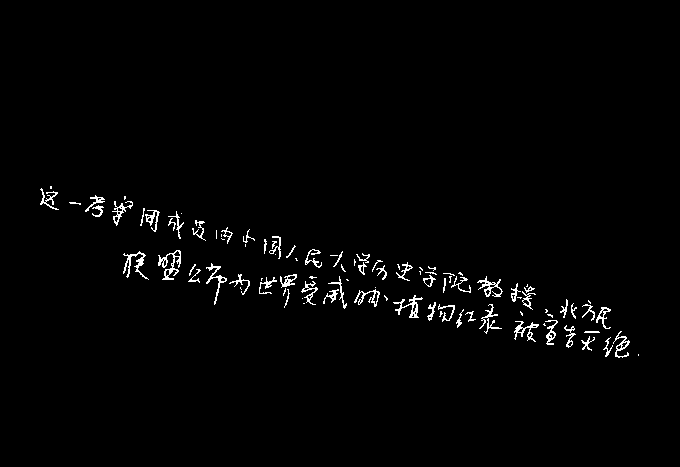 这一考察团成员由中国人民大学历史学院教授、北方民
联盟公布为世界受威胁植物红录被宣告灭绝.